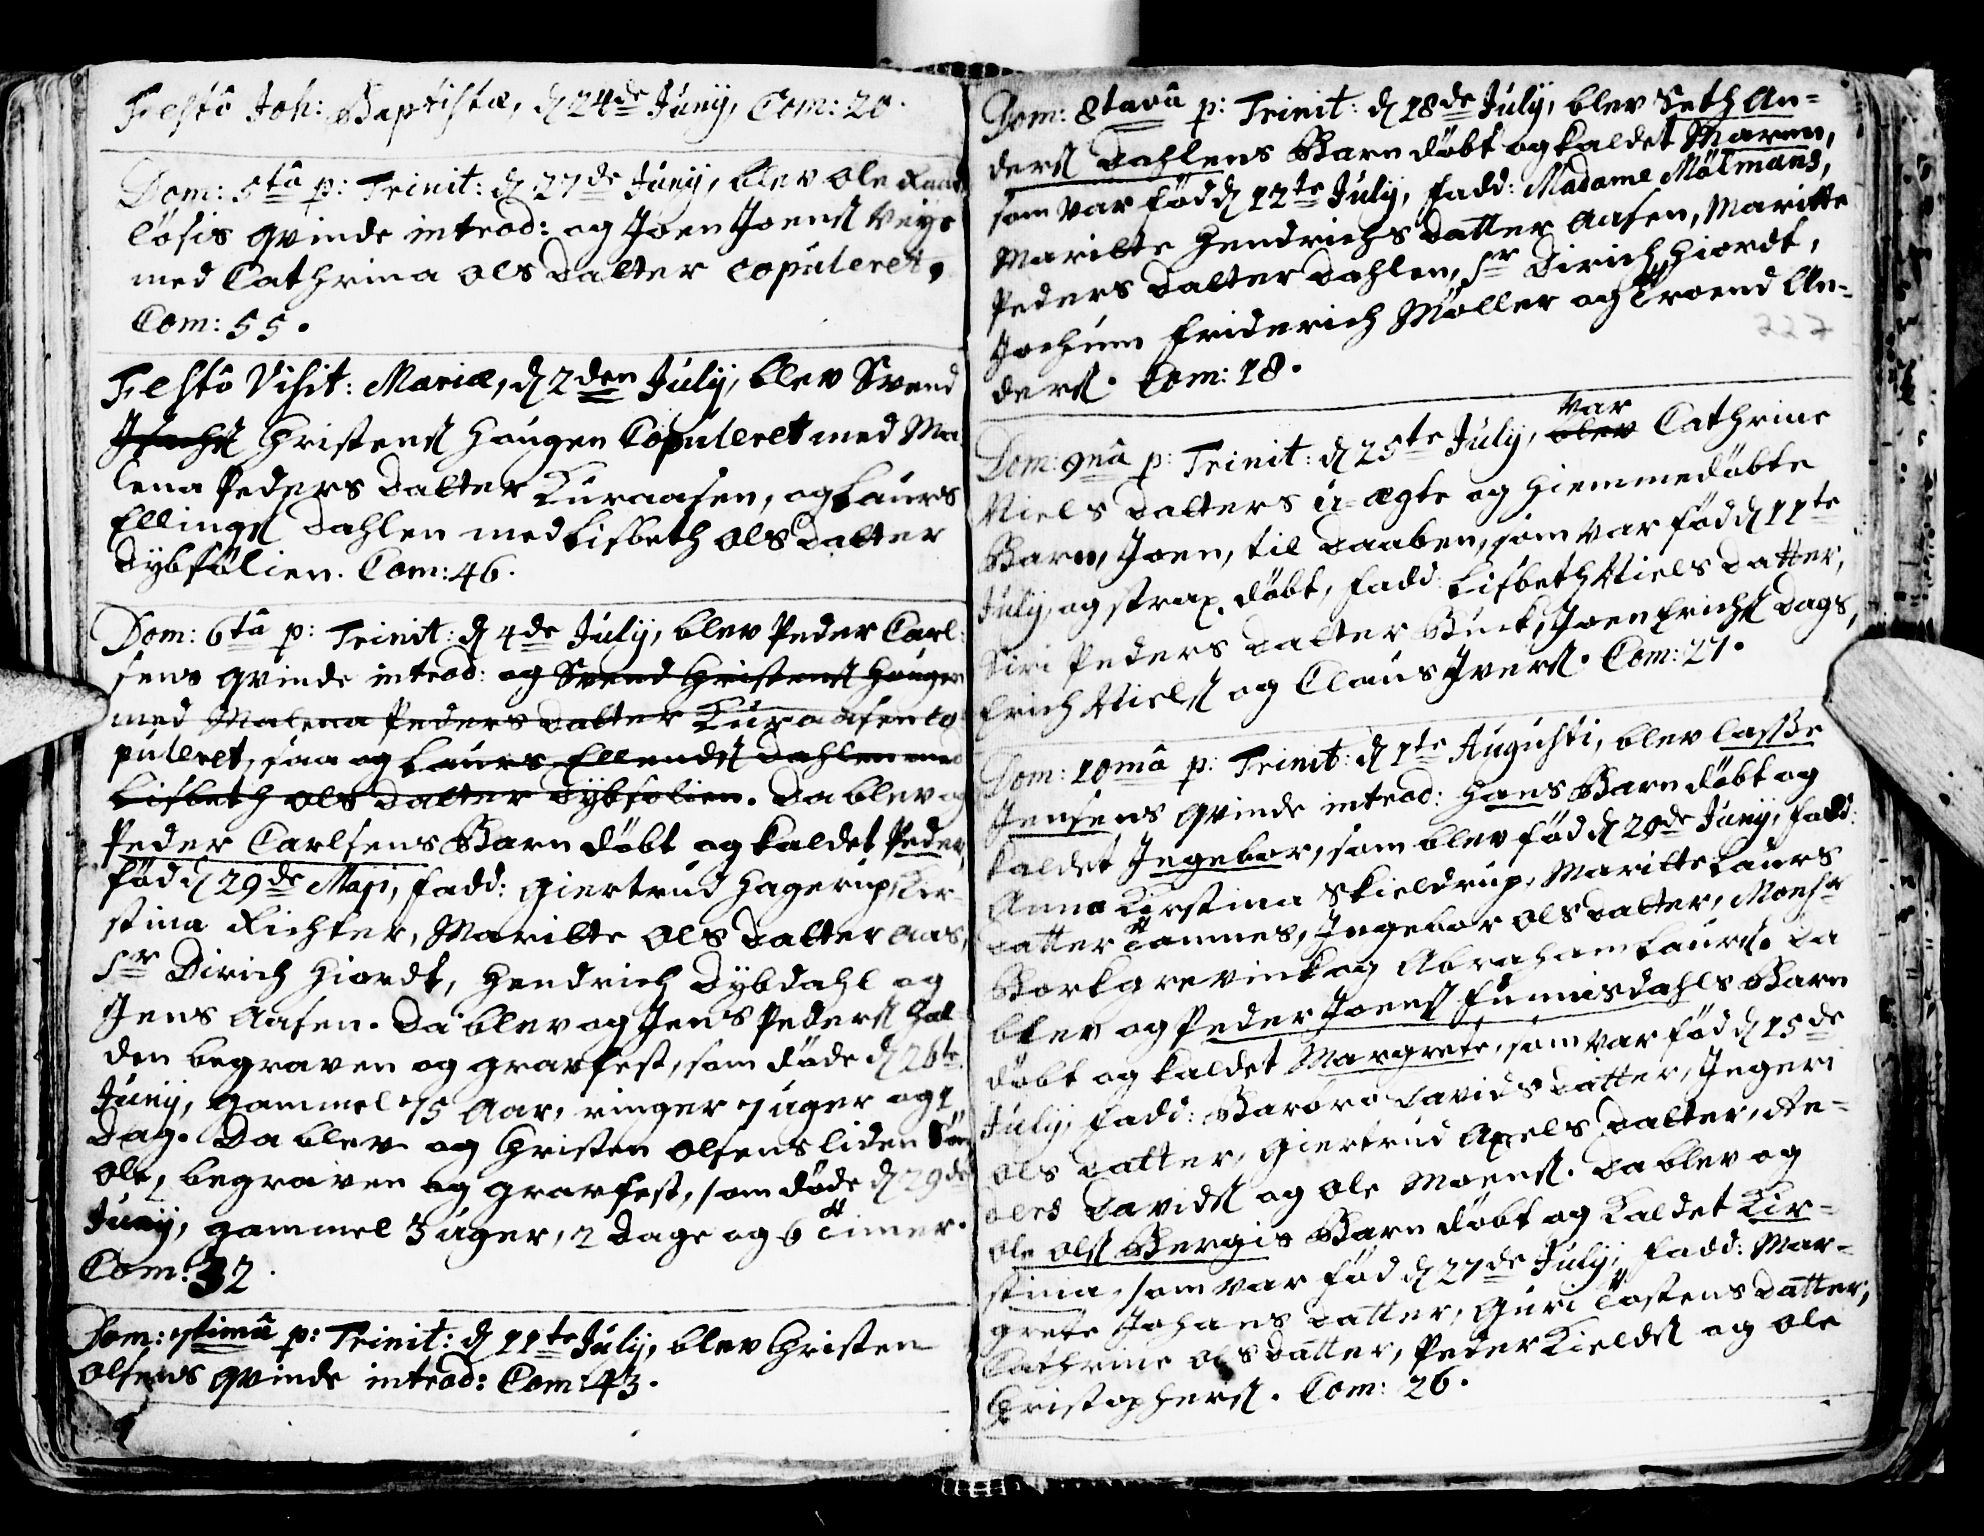 Festô Joh: Baptistæ, d 24de Junÿ, Com: 20.
Dom: 5tâ p: Trinit: d 27de Junÿ, blev Ole
løsis Qvinde introd: og Joen Joens Veys
med Cathrina Ols Datter copuleret,
Com: 55.
Festô Visit: Mariæ, d 2den Julÿ, blev Svend
Christens Haugen Copuleret med Ma
lena Peders Datter Kuraasen, og Laurs
Ellings Dahlen med Lisbeth Ols Datter
Dybsølien. Com: 46.
Dom: 6tâ p: Trinit: d 4de Julÿ, blev Peder Carl
sens Qvinde introd: og Svend Christens Haugen
med Malena Peders Datter Kuraasen co
puleret, saa og Laurs Ellends Dahlen med
Lisbeth Ols Datter Dybsølien. Da blev og
Peder Carlsens Barn døbt og kaldet Peder,
fød d 29de Maji, fadd: Giertrud Hagerup, Kir-
stina Richter, Maritte Ols Datter Aas,
Sr Dirich Hiordt, Hendrich Dybdahl og
Jens Aasen. Da blev og Jens Peders Hal
den begraven og gravfest, som døde d 26te
Junÿ, gammel 75 Aar, ringer 7 uger og 1
Dag. Da blev og Christen Olsens liden Søn
Ole, begraven og gravfest, som døde d 29de
Junÿ, gammel 3 uger, 2 Dage og 6 Timer.
Com: 32.
Dom: 7timâ p: Trinit: d 11te Julÿ, blev Christen
Olsens Qvinde introd: Com: 43.
Dom: 8tavâ p: Trinit: d 18de Julÿ, blev Seth An=
ders Dahlens Barn døbt og kaldet Maren,
som var fød d 12te Julÿ, fadd: Madame Mølmans,
Maritte Hendrichs Datter Aasen, Maritte
Peders Datter Dahlen, Sr Dirich Hiordt,
Jochum Friderich Møller og Troend An-
ders. Com: 18.
227
var
Dom: 9nâ p: Trinit: d 25te Julÿ, blev Cathrine
Niels Datters u-ægte og hiemmedøbte
Barn, Joen, til Daaben, som var fød d 11te
Julÿ, og strax døbt, fadd: Lisbeth Niels Datter,
Siri Peders Datter Buck, Joen Erichs Dags,
Erich Niels og Claus Ivers. Com: 27.
Dom: 10mâ p: Trinit: d 1te Augusti, blev Lasse
Jensens Qvinde introd: Hans Barn døbt og
kaldet Ingebor, som blev fød d 29de Junÿ, fadd:
Anna Kirstina Skieldrup, Maritte Laurs
Datter Tamnes, Ingebor Ols Datter, Monsr
Borkgrevink og Abraham Laurs. Da
blev og Peder Joens Funnisdahls Barn
døbt og kaldet Margrete, som var fød d 15de
Julÿ, fadd: Baroro Davids Datter, Ingeri
Ols Datter, Giertrud Axels Datter,
Davids og Ole Moens. Da blev og
Ole Ols Bergis Barn døbt og kaldet Kir=
stina, som var fød d 27de Julÿ, fadd: Mar=
grete Johans Datter, Guri Tostens Datter,
Cathrine Ols Datter, Peder Kields og Ole
Christophers. Com: 26.